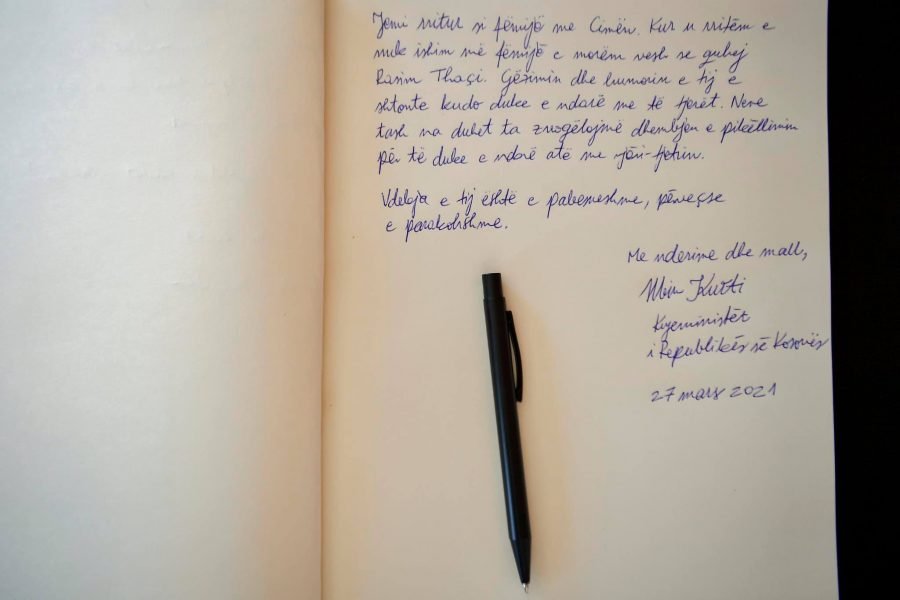 Jemi rritur si fëmijë me Cimën. Kur u rritëm e
nuk ishim më fëmijë e morëm vesh se quhej
Rasim Thaçi. Gëzimin dhe humorin e tij e
shtonte kudo duke e ndarë me të tjerët. Neve
tash na duhet ta zvogëlojmë dhembjen e pikëllimin
për të duke e ndarë atë me njëri-tjetrin.
Vdekja e tij është e pabesueshme, përveçse
e parakohshme.
Me nderime dhe mall,
Albin Kurti
Kryeministër
i Republikës së Kosovës
27 mars 2021